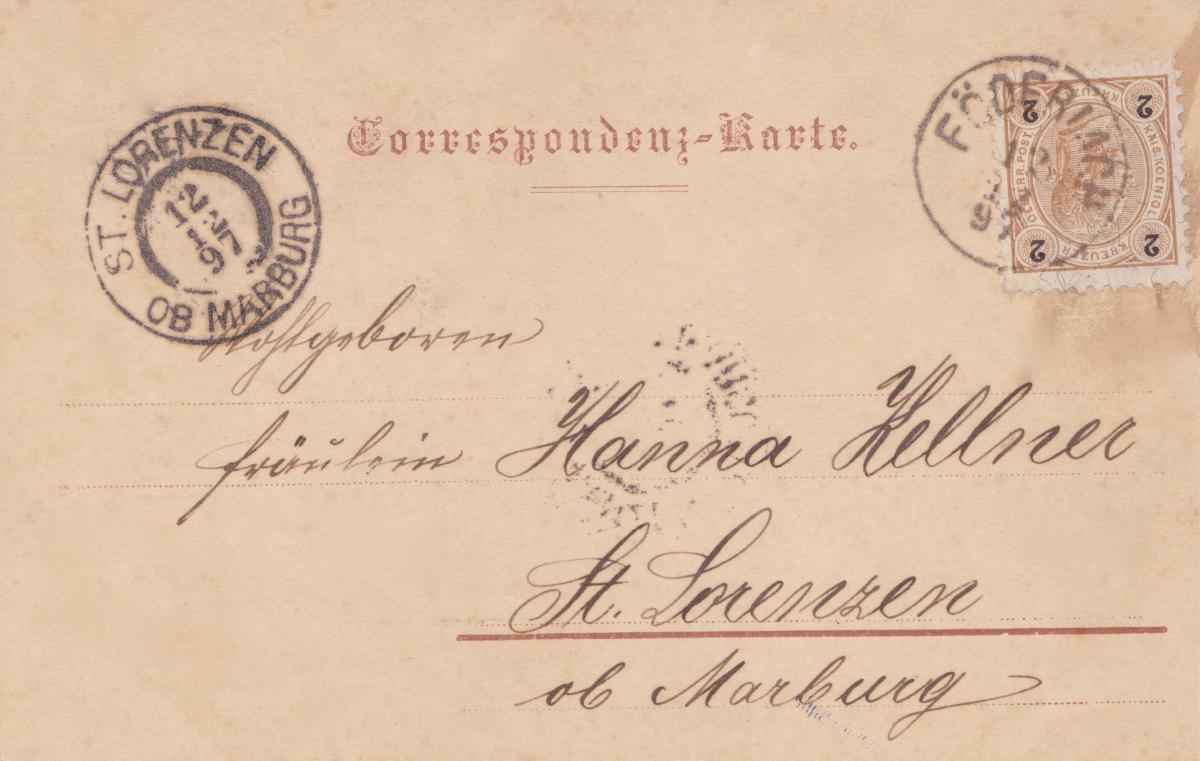 Correspondenz-Karte.
ST. LORENZEN
12
97
OB MARBURG
2 2
2 2
OESTERR. POST
KAIS. KOENIGL.
KREUZER
KREUZER
Wohlgeboren
Fräulein Hanna Kellner
St. Lorenzen
ob Marburg